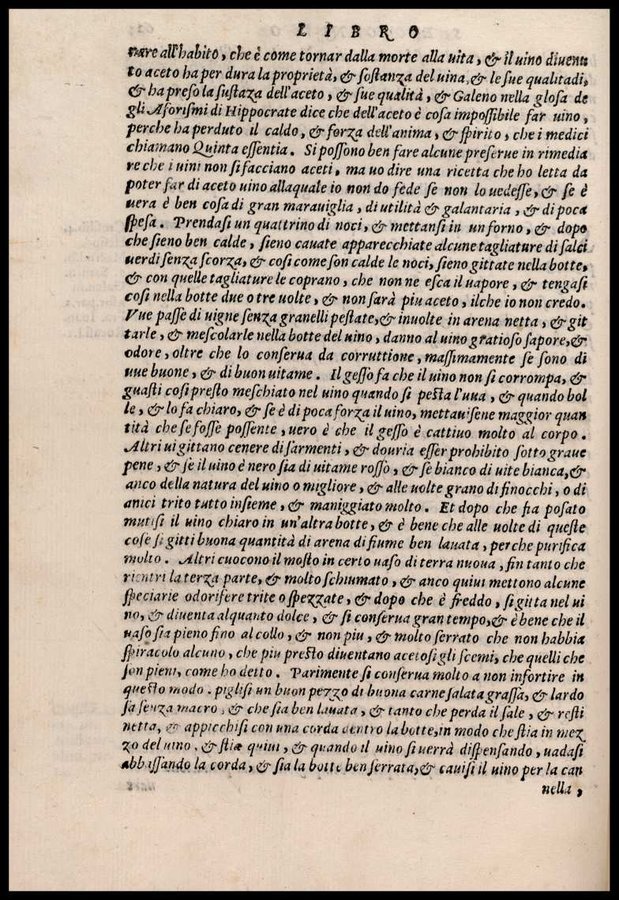 LIBRO
nare all'habito, che è come tornar dalla morte alla uita, & il uino diuenu
to aceto ha per dura la proprietà, & sostanza del uina, & le sue qualitadi,
& ha preso la sustaza dell'aceto, & sue qualità, & Galeno nella glosa de
gli Aforismi di Hippocrate dice che dell'aceto è cosa impossibile far uino,
perche ha perduto il caldo, & forza dell'anima, & spirito, che i medici
chiamano Quinta essentia. Si possono ben fare alcune preserue in rimedia
re che i uini non si facciano aceti, ma uo dire una ricetta che ho letta da
poter far di aceto uino allaquale io non do fede se non lo uedesse, & se è
uera è ben cosa di gran marauiglia, di utilità & galantaria, & di poca
spesa. Prendasi un quattrino di noci, & mettansi in un forno, & dopo
che sieno ben calde, sieno cauate apparecchiate alcune tagliature di salci
uerdi senza scorza, & cosi come son calde le noci, sieno gittate nella botte,
& con quelle tagliature le coprano, che non ne esca il uapore, & tengasi
cosi nella botte due o tre uolte, & non sarà piu aceto, ilche io non credo.
Vue passe di uigne senza granelli pestate, & inuolte in arena netta, & git
tarle, & mescolarle nella botte del uino, danno al uino gratioso sapore, &
odore, oltre che lo conserua da corruttione, massimamente se sono di
uue buone, & di buon uitame. Il gesso fa che il uino non si corrompa, &
guasti cosi presto meschiato nel uino quando si pesta l'uua, & quando bol
le, & lo fa chiaro, & se è di poca forza il uino, mettauisene maggior quan
tità che se fosse possente, uero è che il gesso è cattiuo molto al corpo.
Altri ui gittano cenere di sarmenti, & douria esser prohibito sotto graue
pene, & se il uino è nero sia di uitame rosso, & se bianco di uite bianca, &
anco della natura del uino o migliore, & alle uolte grano di finocchi, o di
anici trito tutto insieme, & maniggiato molto. Et dopo che sia posato
mutisi il uino chiaro in un'altra botte, & è bene che alle uolte di queste
cose si gitti buona quantità di arena di fiume ben lauata, perche purifica
molto. Altri cuocono il mosto in certo uaso di terra nuoua, fin tanto che
rientri la terza parte, & molto schiumato, & anco quiui mettono alcune
speciarie odorifere trite o spezzate, & dopo che è freddo, si gitta nel ui
no, & diuenta alquanto dolce, & si conserua gran tempo, & è bene che il
uaso sia pieno fino al collo, & non piu, & molto serrato che non habbia
spiracolo alcuno, che piu presto diuentano acetosi gli scemi, che quelli che
son pieni, come ho detto. Parimente si conserua molto a non infortire in
questo modo. piglisi un buon pezzo di buona carne salata grassa, & lardo
sa senza macro, & che sia ben lauata, & tanto che perda il sale, & resti
netta, & appicchisi con una corda dentro la botte, in modo che stia in mez
zo del uino, & stia quiui, & quando il uino si uerrà dispensando, uadasi
abbassando la corda, & sia la botte ben serrata, & cauisi il uino per la can
nella,